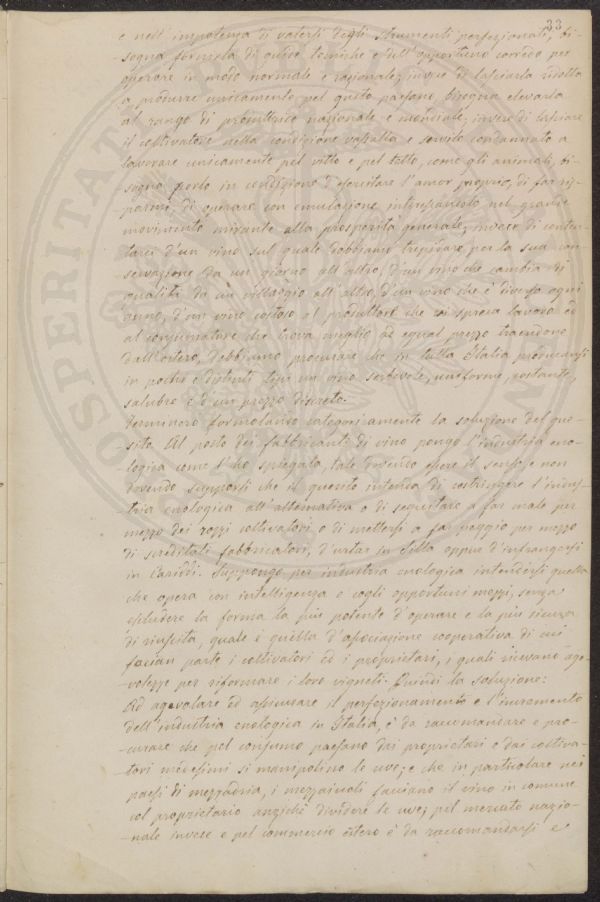 33
e nell'impotenza di valersi degli strumenti perfezionati, bi-
-sogna fornirla di guide tecniche e dell'opportuno corredo per
operare in modo normale e razionale; invece di lasciarla ridotta
a produrre unicamente pel gusto paesano bisogna elevarla
al rango di produttrice nazionale e mondiale; invece di lasciare
il coltivatore nella condizione vassalla e servile condannato a
lavorare unicamente pel vitto e pel tetto, come gli animali, bi-
sogna porlo in condizione d'esercitare l'amor proprio, di far ris-
parmi, di operare con emulazione interessandolo nel grande
movimento mirante alla prosperità generale; invece di conten-
tarci d'un vino sul quale dobbiamo trepidare per la sua con-
servazione da un giorno all'altro, d'un vino che cambia di
qualità da un villaggio all'altro, d'un vino che è diverso ogni
anno, d'un vino costoso al produttore che vi spreca lavoro ed
al consumatore che trova meglio ad egual prezzo traendone
dall'estero, debbiamo procurare che in tutta Italia producansi
in pochi e distinti tipi un vino serbevole, uniforme, costante,
salubre e d'un prezzo discreto.
Terminerò formolando categoricamente la soluzione del que-
-sito. Al posto dei fabbricanti di vino pongo l'industria eno-
-logica come l'ho spiegata, tale dovendo essere il senso, e non
dovendo supporsi che il quesito intenda di costringere l'indus-
-tria enologica all'alternativa o di seguitare a far male per
mezzo dei rozzi coltivatori o di mettersi a far peggio per mezzo
di screditati fabbricatori, d'urtar in Scilla oppur d'infrangersi
in Cariddi. Suppongo per industria enologica intendersi quella
che opera con intelligenza e cogli opportuni mezzi, senza
escludere la forma la più potente d'operare e la più sicura
di riuscita, quale è quella d'associazione cooperativa di cui
facian parte i coltivatori ed i proprietari, i quali ricevano age-
volezze per riformare i loro vigneti. Quindi la soluzione:
Ad agevolare ed assicurare il perfezionamento e l'incremento
dell'industria enologica in Italia, è da raccomandare e pro-
-curare che pel consumo paesano dai proprietari e dai coltiva-
-tori medesimi si manipolino le uve; e che in particolare nei
paesi di mezzadria, i mezzaiuoli facciano il vino in comune
col proprietario anzichè dividere le uve; pel mercato nazio-
-nale invece e pel commercio estero è da raccomandarsi e